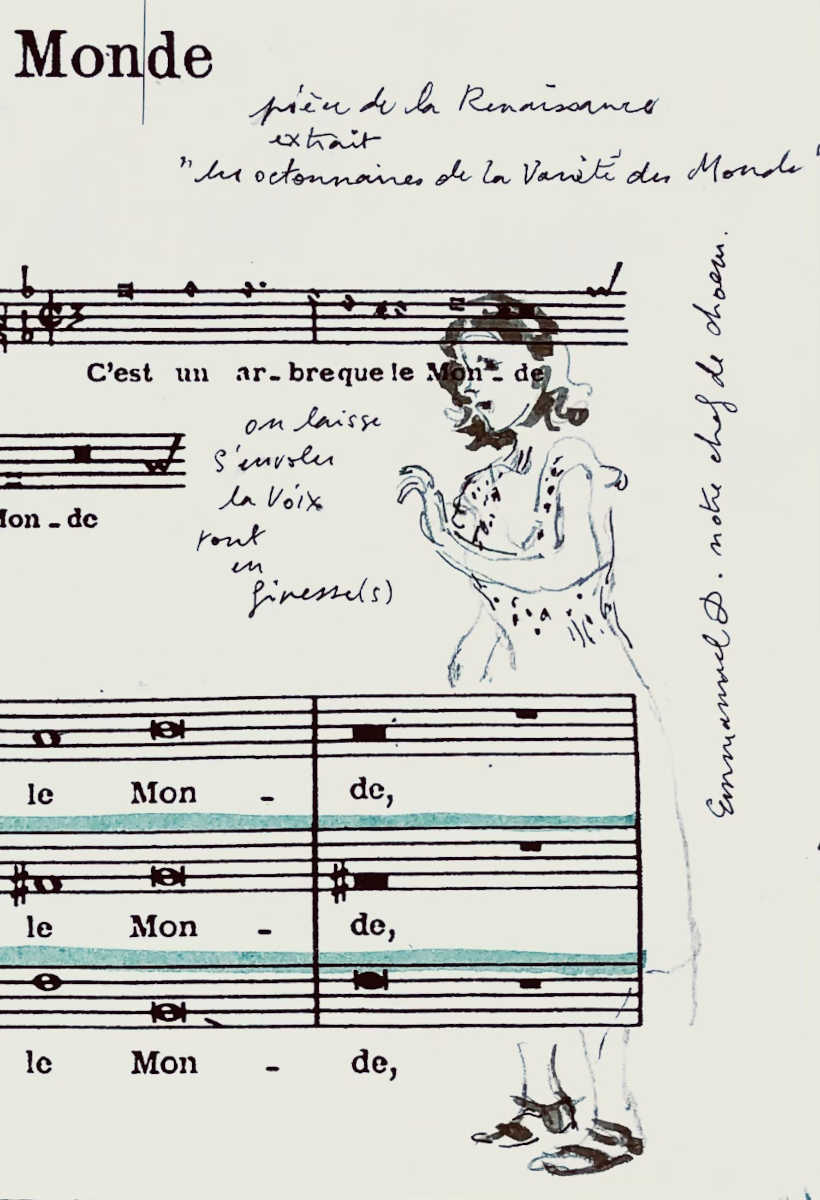 Monde
pièce de la Renaissance
extrait
"les octonnaires de la Vanité du Monde"
C'est un ar-breque le Mon-de
on laisse
s'envoler
la Voix
tout
en
finesse(s)
Mon-de
le Mon - de,
le Mon - de,
le Mon - de,
Emmanuel D. notre chef de choeur.